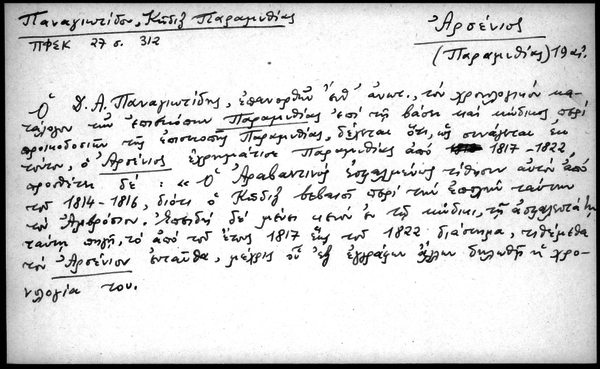 Παναγιωτίδου, Κῶδιξ Παραμυθίας
ΠΦΣΚ 27 σ. 312
Ἀρσένιος
(Παραμυθίας) 19 αἰ.
Ὁ Δ. Α. Παναγιωτίδης, ἐπανορθῶν ἐνθ' ἀνωτ., τὸν χρονολογικὸν κα-
τάλογον τῶν ἐπισκόπων Παραμυθίας ἐπὶ τῇ βάσει καὶ κώδικος περὶ
προικοδοσιῶν τῆς ἐπισκοπῆς Παραμυθίας, δέχεται ὅτι, ὡς συνάγεται ἐκ
τούτου, ὁ Ἀρσένιος ἐχρημάτισε Παραμυθίας ἀπὸ 1817-1822,
προσθέτει δέ: «Ὁ Ἀραβαντινὸς ἐσφαλμένως τίθησιν αὐτὸν ἀπὸ
τοῦ 1814-1816, διότι ὁ Κῶδιξ βεβαιοῖ περὶ τὴν ἐποχὴν ταύτην
τὸν Ἀμβρόσιον. Ἐπειδὴ δὲ μένει κενὸν ἐν τῷ κώδικι, τῇ ἀσφαλεστάτῃ
ταύτῃ πηγῇ, τὸ ἀπὸ τοῦ ἔτους 1817 ἕως τοῦ 1822 διάστημα, τιθέμεθα
τὸν Ἀρσένιον ἐνταῦθα, μέχρις οὗ ἐξ ἐγγράφων ἄλλων δηλωθῇ ἡ χρο-
νολογία του.